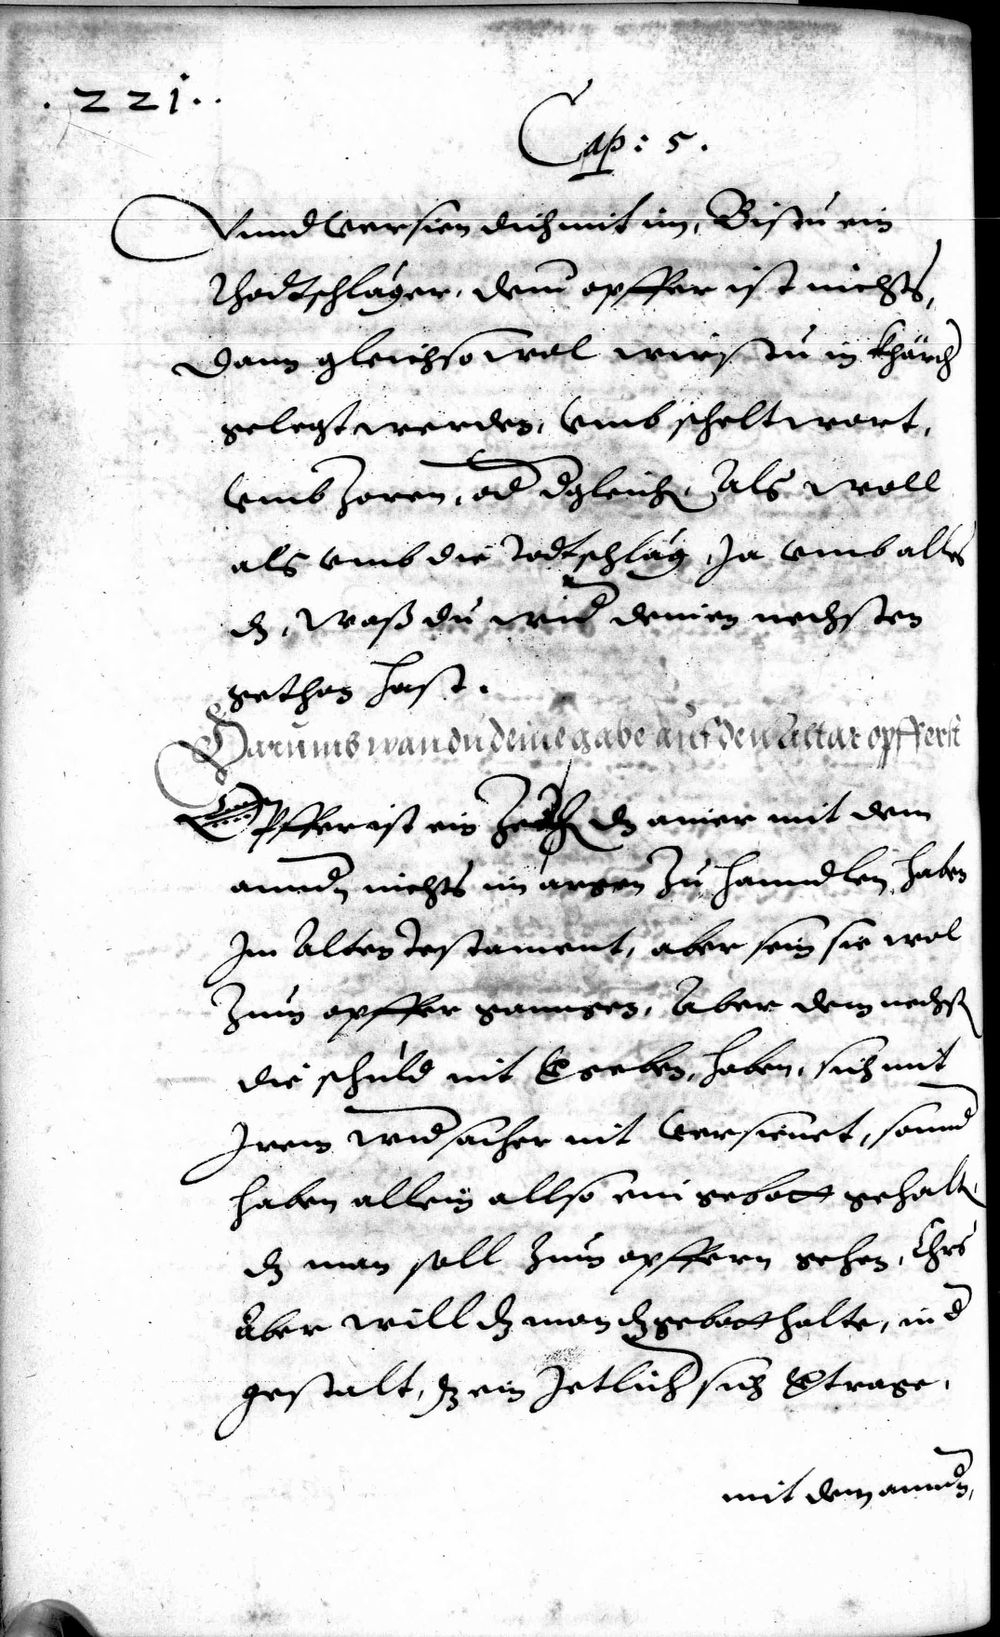 . 221 ..
Cap: 5.
Vnnd versien dich mit im, Bistu ein
Thodtschläger, dein opffer ist nichts,
Dann gleichso wol wirstu in Khärch
gelegt werden, vmb scheltwort,
vmb Zoren, od dgleich, Als woll
als vmb die todtschläg, Ja vmb alles
dz, Waß du wid deinen nechsten
gethon hast.
Darumb wan du deine gabe auf den Altar opfferst
Opffer ist ein dz ainer mit dem
annd nichts im argen zu hanndlen haben
Im Alten Testament, aber sein sie wol
Zum opffer ganngen, Aber dem nechst
die schuld nit Vgeben, haben, sich mit
Irem widsacher nit versienet, sonnd
haben allein allso ein gebott gehalt,
dz man soll zum opffern gehen, Chrs
Aber will dz man dz gebott halte, in d
gestalt, dz ein Jetlich sich Vtrage,
mit dem annd,